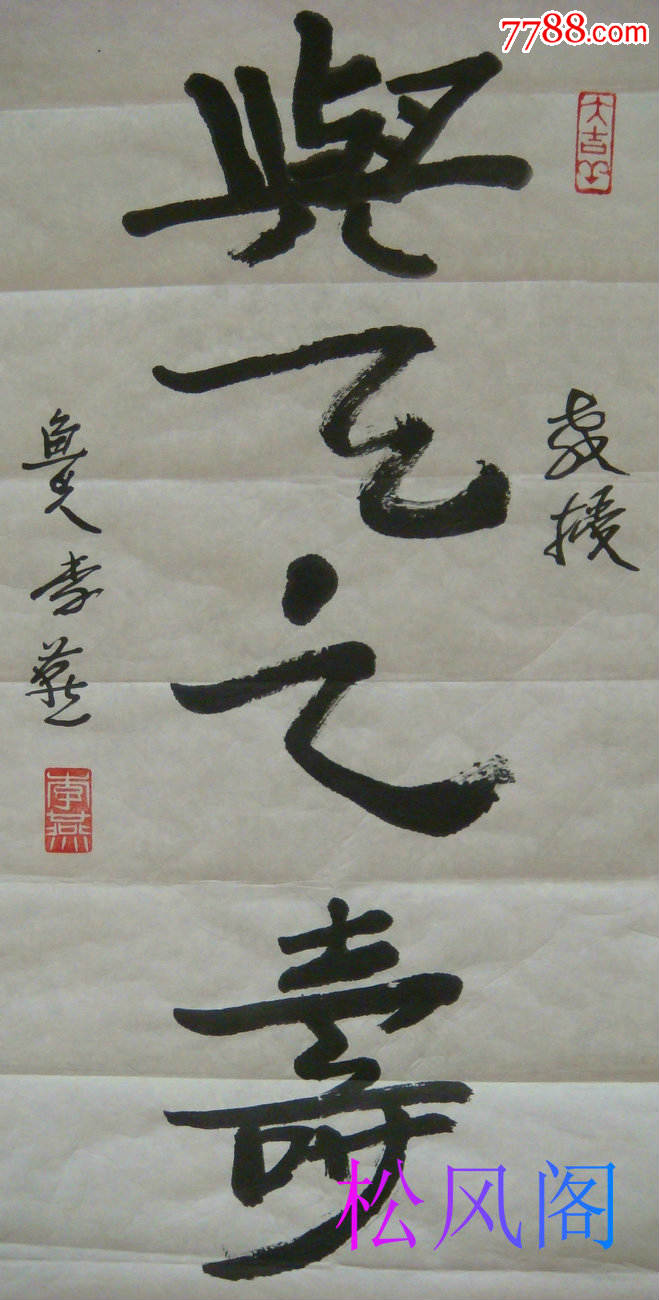 7788.com
大吉羊
與天之壽
教授
李燕
李燕
松风阁